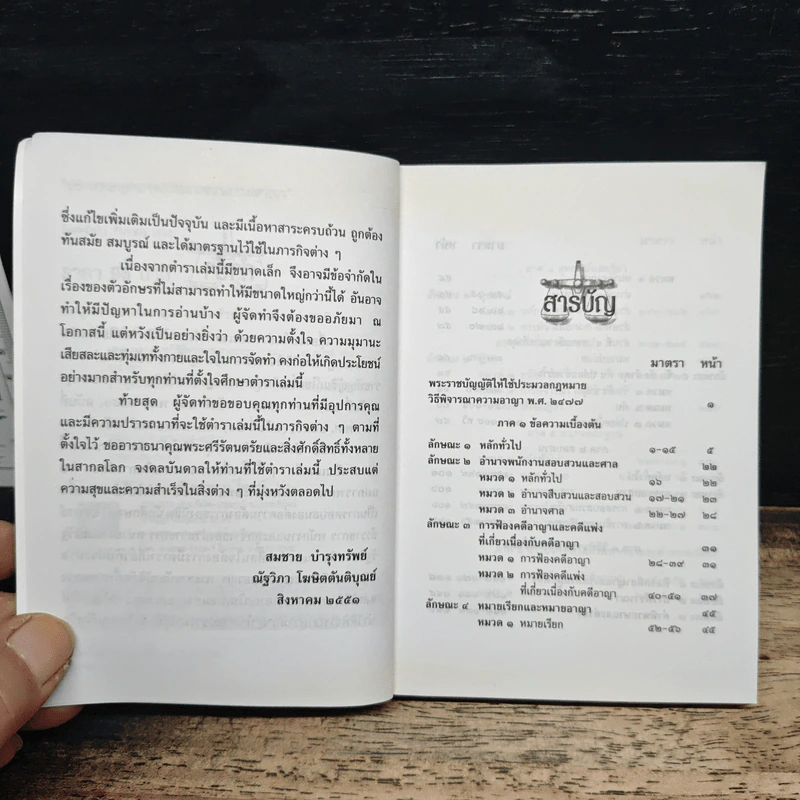 ซึ่งแก้ไขเพิ่มเติมเป็นปัจจุบัน และมีเนื้อหาสาระครบถ้วน ถูกต้อง
ทันสมัย สมบูรณ์ และได้มาตรฐานไว้ใช้ในภารกิจต่าง ๆ
เนื่องจากตำราเล่มนี้มีขนาดเล็ก จึงอาจมีข้อจำกัดใน
เรื่องของตัวอักษรที่ไม่สามารถทำให้มีขนาดใหญ่กว่านี้ได้ อันอาจ
ทำให้มีปัญหาในการอ่านบ้าง ผู้จัดทำจึงต้องขออภัยมา ณ
โอกาสนี้ แต่หวังเป็นอย่างยิ่งว่า ด้วยความตั้งใจ ความมุมานะ
เสียสละและทุ่มเททั้งกายและใจในการจัดทำ คงก่อให้เกิดประโยชน์
อย่างมากสำหรับทุกท่านที่ตั้งใจศึกษาตำราเล่มนี้
ท้ายสุด ผู้จัดทำขอขอบคุณทุกท่านที่มีอุปการคุณ
และมีความปรารถนาที่จะใช้ตำราเล่มนี้ในภารกิจต่าง ๆ ตามที่
ตั้งใจไว้ ขออาราธนาคุณพระศรีรัตนตรัยและสิ่งศักดิ์สิทธิ์ทั้งหลาย
ในสากลโลก จงดลบันดาลให้ท่านที่ใช้ตำราเล่มนี้ ประสบแต่
ความสุขและความสำเร็จในสิ่งต่าง ๆ ที่มุ่งหวังตลอดไป
สมชาย บำรุงทรัพย์
ณัฐวิภา โฆษิตตันติบุณย์
สิงหาคม ๒๕๕๑
สารบัญ
มาตรา หน้า
พระราชบัญญัติให้ใช้ประมวลกฎหมาย
วิธีพิจารณาความอาญา พ.ศ. ๒๔๗๗ ๑
ภาค ๑ ข้อความเบื้องต้น
ลักษณะ ๑ หลักทั่วไป ๑-๑๕ ๕
ลักษณะ ๒ อำนาจพนักงานสอบสวนและศาล ๒๒
หมวด ๑ หลักทั่วไป ๑๖ ๒๒
หมวด ๒ อำนาจสืบสวนและสอบสวน ๑๗-๒๑ ๒๓
หมวด ๓ อำนาจศาล ๒๒-๒๗ ๒๘
ลักษณะ ๓ การฟ้องคดีอาญาและคดีแพ่ง
ที่เกี่ยวเนื่องกับคดีอาญา ๓๑
หมวด ๑ การฟ้องคดีอาญา ๒๘-๓๙ ๓๑
หมวด ๒ การฟ้องคดีแพ่ง
ที่เกี่ยวเนื่องกับคดีอาญา ๔๐-๕๑ ๓๗
ลักษณะ ๔ หมายเรียกและหมายอาญา ๔๕
หมวด ๑ หมายเรียก ๕๒-๕๖ ๔๕